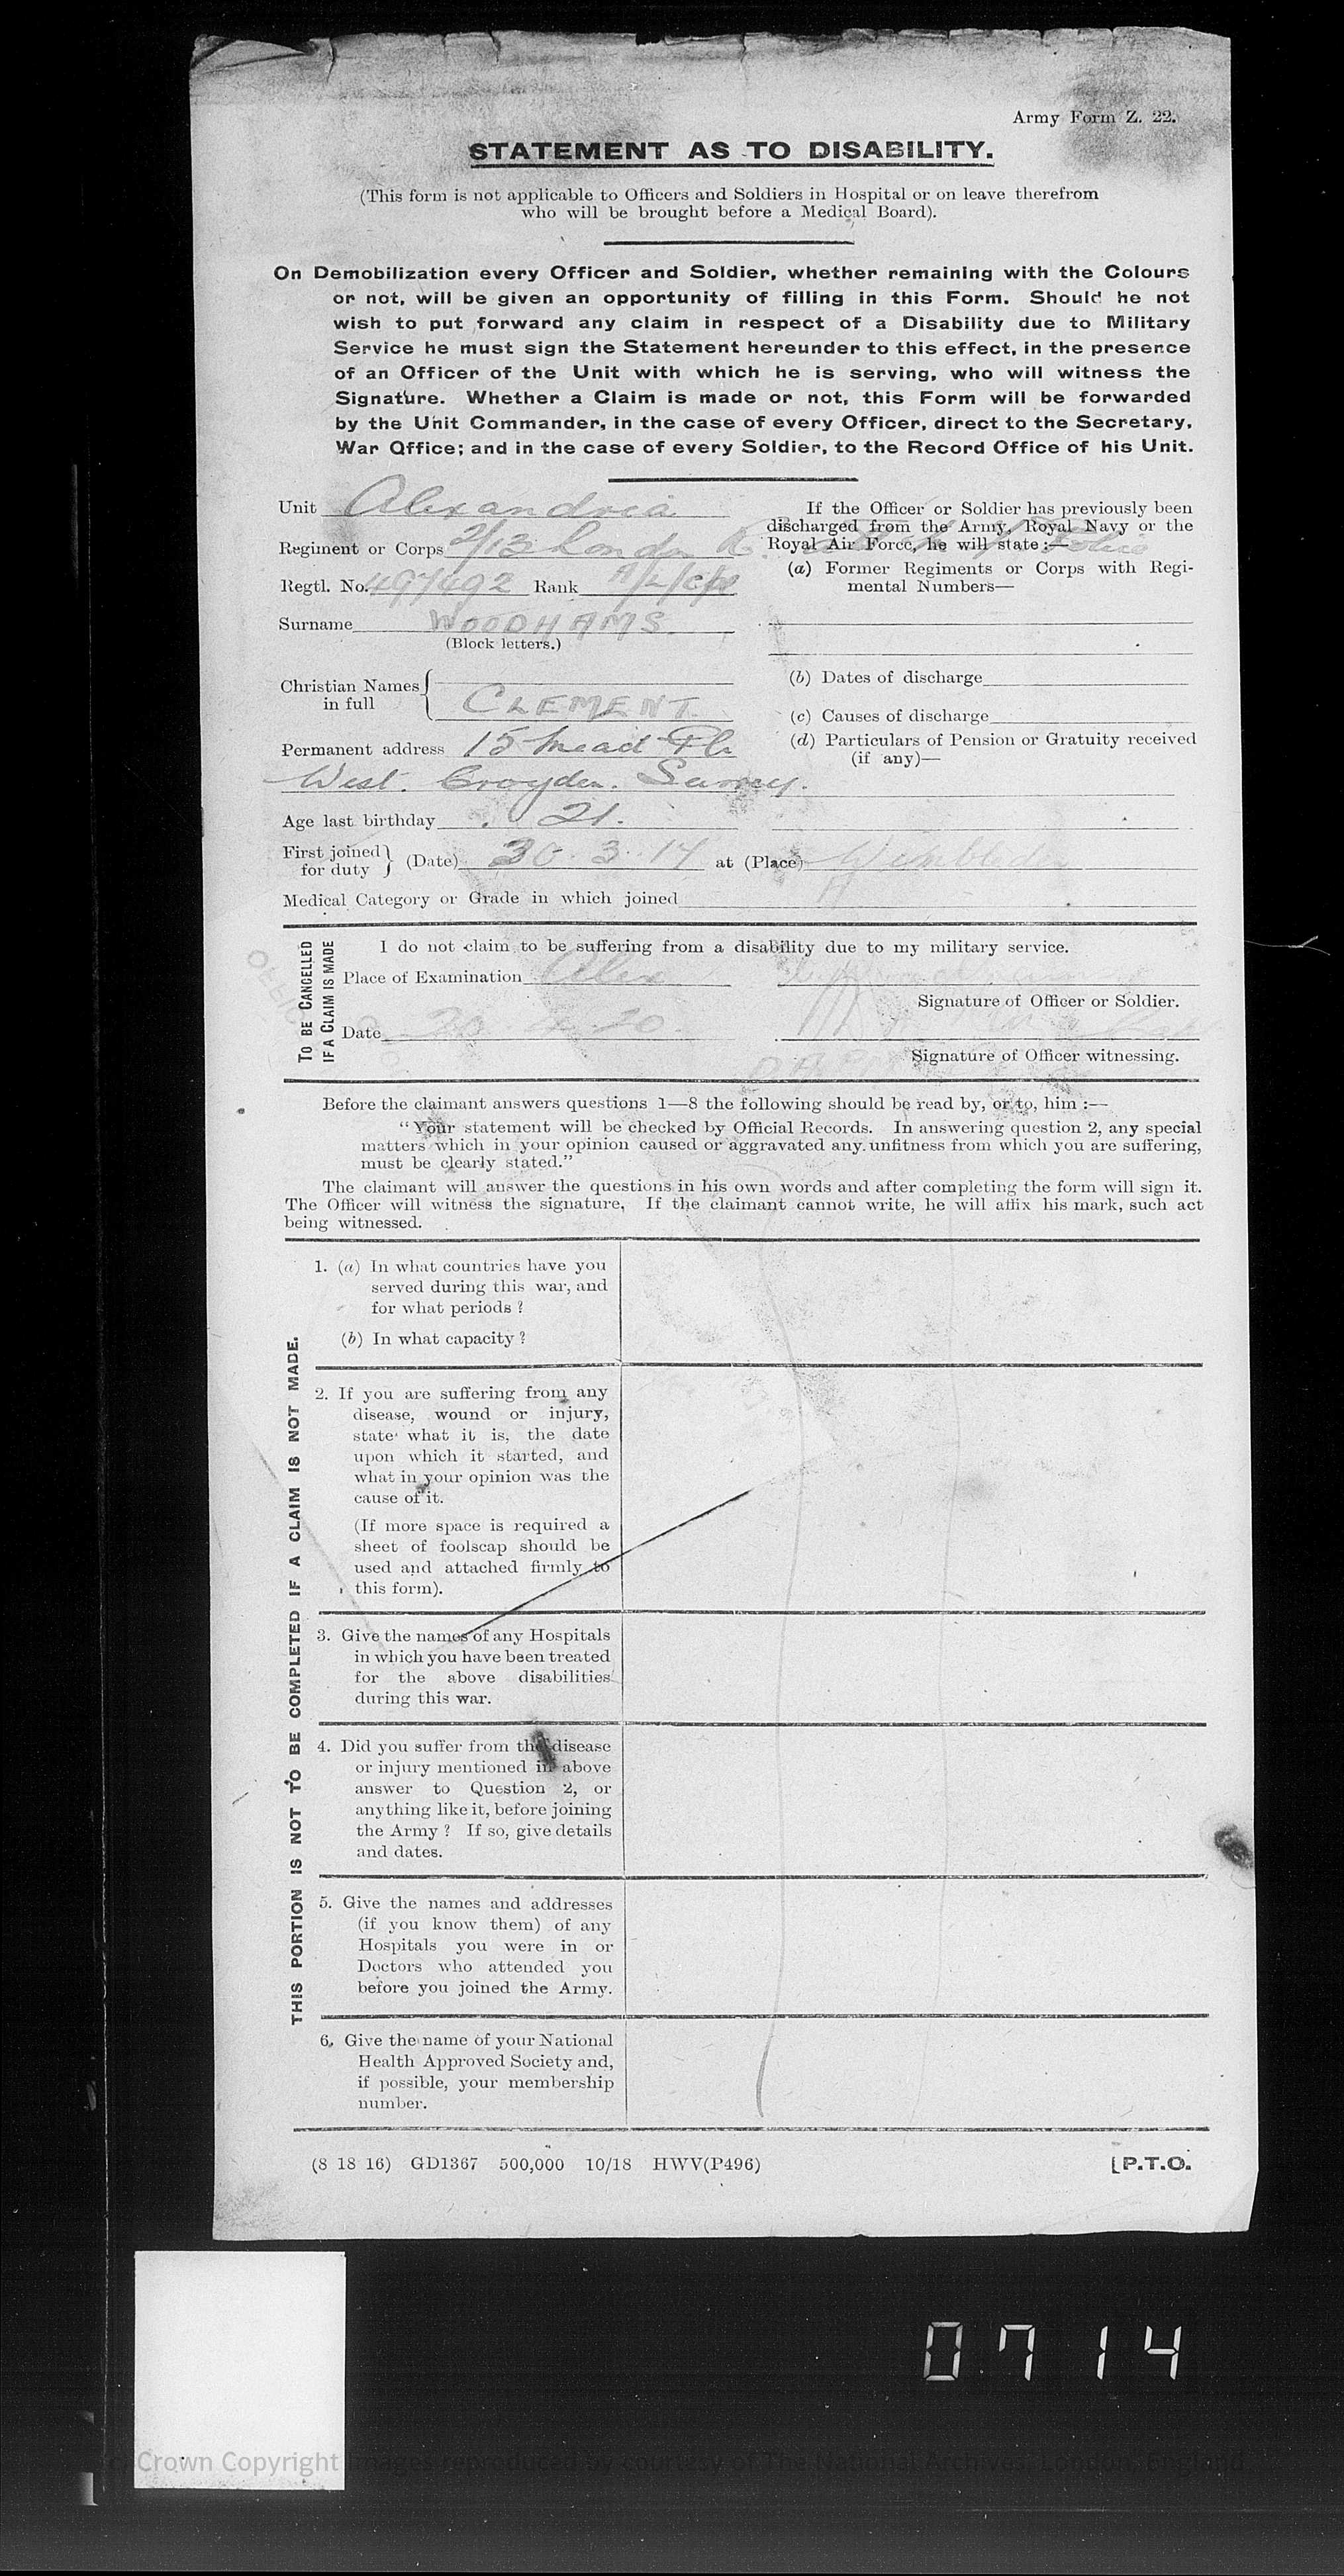 Army Form Z. 22.
STATEMENT AS TO DISABILITY.
(This form is not applicable to Officers and Soldiers in Hospital or on leave therefrom
who will be brought before a Medical Board).
On Demobilization every Officer and Soldier, whether remaining with the Colours
or not, will be given an opportunity of filling in this Form. Should he not
wish to put forward any claim in respect of a Disability due to Military
Service he must sign the Statement hereunder to this effect, in the presence
of an Officer of the Unit with which he is serving, who will witness the
Signature. Whether a Claim is made or not, this Form will be forwarded
by the Unit Commander, in the case of every Officer, direct to the Secretary,
War Office; and in the case of every Soldier, to the Record Office of his Unit.
Unit Alexandria
Regiment or Corps 2/13 London R.
Regtl. No. 497492 Rank A/L/Cpl
Surname WOODHAMS
(Block letters.)
Christian Names in full CLEMENT
Permanent address 15 Mead Pl.
West. Croydon. Surrey.
Age last birthday 21.
If the Officer or Soldier has previously been
discharged from the Army, Royal Navy or the
Royal Air Force, he will state:—
(a) Former Regiments or Corps with Regi-
mental Numbers—
(b) Dates of discharge
(c) Causes of discharge
(d) Particulars of Pension or Gratuity received
(if any)—
First joined for duty (Date) 30. 3. 17 at (Place) Wimbledon
Medical Category or Grade in which joined A
TO BE CANCELLED
IF A CLAIM IS MADE
I do not claim to be suffering from a disability due to my military service.
Place of Examination Alex
Signature of Officer or Soldier.
Date
Signature of Officer witnessing.
Before the claimant answers questions 1—8 the following should be read by, or to, him :—
"Your statement will be checked by Official Records. In answering question 2, any special
matters which in your opinion caused or aggravated any unfitness from which you are suffering,
must be clearly stated."
The claimant will answer the questions in his own words and after completing the form will sign it.
The Officer will witness the signature, If the claimant cannot write, he will affix his mark, such act
being witnessed.
THIS PORTION IS NOT TO BE COMPLETED IF A CLAIM IS NOT MADE.
1. (a) In what countries have you
served during this war, and
for what periods ?
(b) In what capacity ?
2. If you are suffering from any
disease, wound or injury,
state what it is, the date
upon which it started, and
what in your opinion was the
cause of it.
(If more space is required a
sheet of foolscap should be
used and attached firmly to
this form).
3. Give the names of any Hospitals
in which you have been treated
for the above disabilities
during this war.
4. Did you suffer from the disease
or injury mentioned in above
answer to Question 2, or
anything like it, before joining
the Army ? If so, give details
and dates.
5. Give the names and addresses
(if you know them) of any
Hospitals you were in or
Doctors who attended you
before you joined the Army.
6. Give the name of your National
Health Approved Society and,
if possible, your membership
number.
(8 18 16) GD1367 500,000 10/18 HWV(P496)
[P.T.O.
0714
Crown Copyright Images reproduced by courtesy of The National Archives, London, England